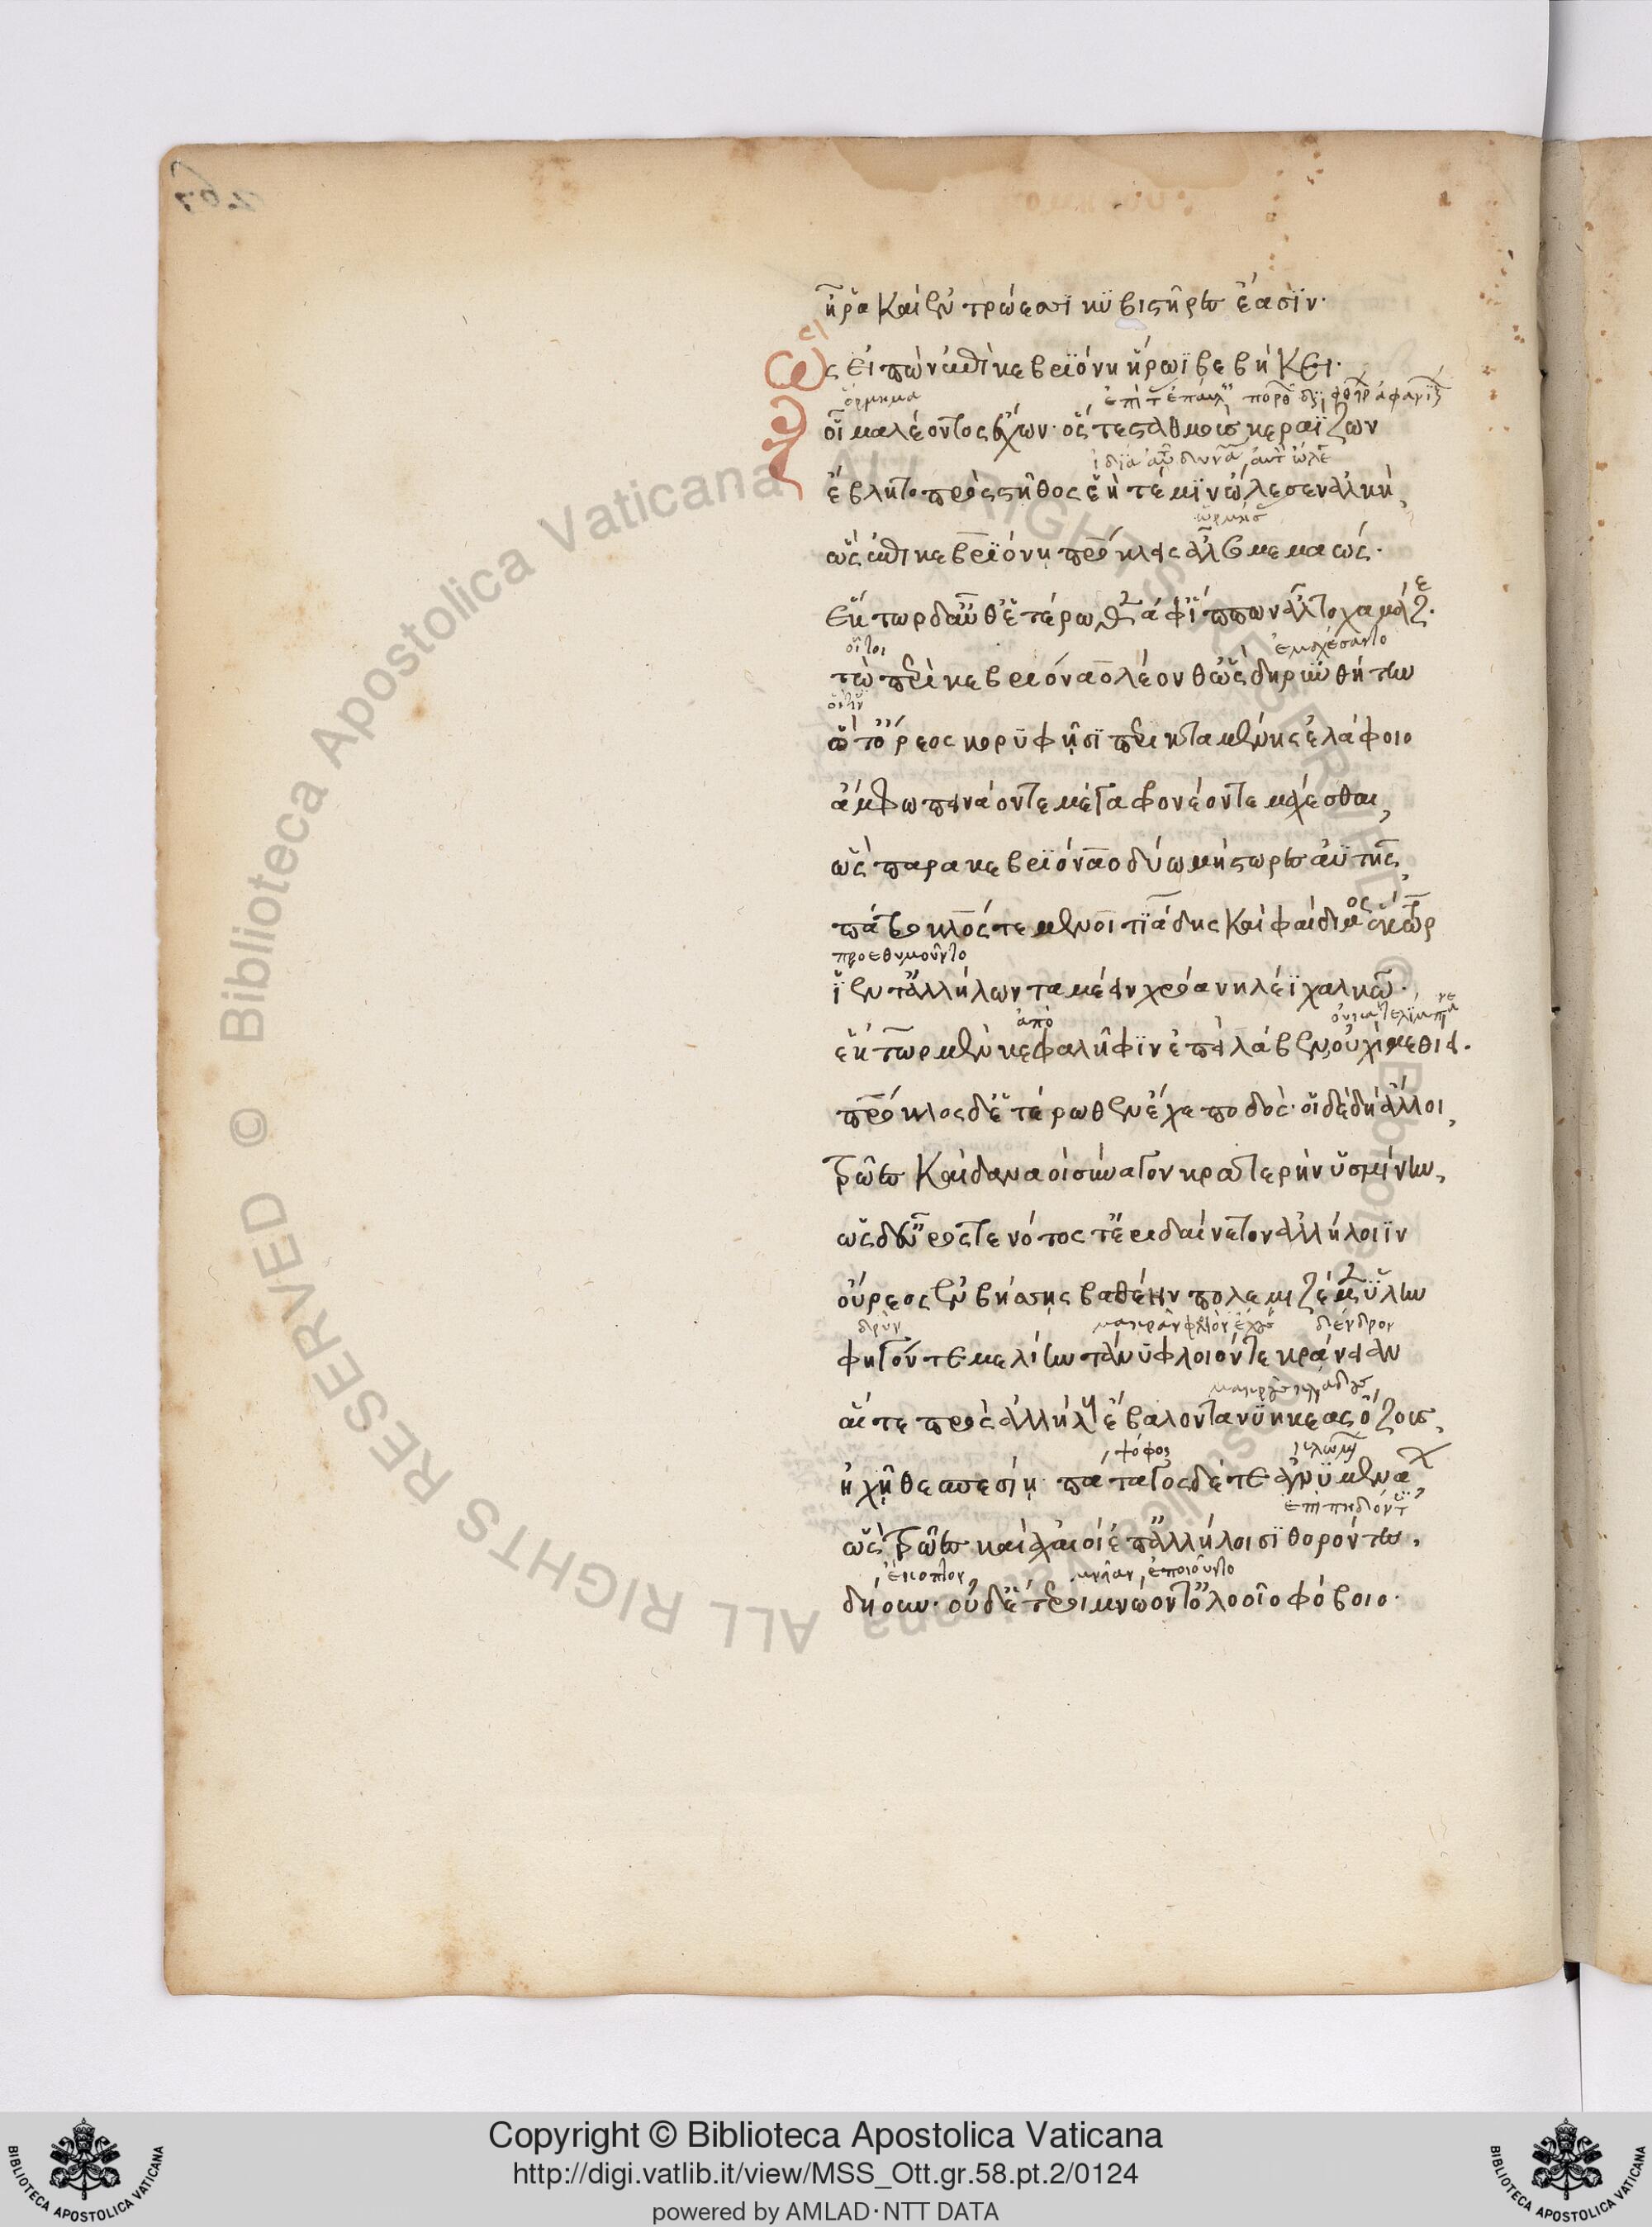 ἦ ῥα καὶ ἐν τρώεσσϊ κϋβιστῆρες ἔασϊν·
Ὣς εἰπὼν ἐπὶ κεβρϊόνῃ ἥρωϊ βεβήκει·
ὅρμημα
οἶμα λέοντος ἔχων· ὅς τε σταθμοὺς κεραΐζων
ἔβλητο πρὸς στῆθος ἑή τέ μϊν ὤλεσεν ἀλκή,
ὣς ἐπὶ κεβρϊόνῃ πατρόκλεις ἆλσο μεμαώς·
ἕκτωρ δ' αὖθ' ἑτέρωθεν ἀφ' ἵππων ἆλτο χαμᾶζε·
οὗτοι ἐμαχέσαντο
τὼ περὶ κεβριόναο λέονθ' ὣς δηρινθήτην
ὥτ' ὄρεος κορῠφῇσϊ περὶ κταμένης ἐλάφοιο
ἄμφω πεινάοντε μέγα φρονέοντε μάχεσθον,
ὣς περὶ κεβρϊόναο δύω μήστωρες ἀϋτῆς,
πάτροκλός τε μενοιτϊάδης καὶ φαίδιμος ἕκτωρ
προεθυμοῦντο
ἵεντ' ἀλλήλων ταμέειν χρόα νηλέϊ χαλκῷ·
ἀπὸ
ἕκτωρ μὲν κεφαλῆφϊν ἐπεὶ λάβεν οὐχὶ μεθίει·
πάτροκλος δ' ἑτέρωθεν ἔχε ποδός· οἱ δὲ δὴ ἄλλοι,
τρῶες καὶ δαναοὶ σύναγον κρατερὴν ὑσμίνην,
ὡς δ' εὖρός τε νότος τ' ἐριδαίνετον ἀλλήλοιϊν
οὔρεος ἐν βήσσῃς βαθέην πολεμιζέμεν ὕλην
δρῦν μακρὰν φλοιὸν ἔχουσαν δένδρον
φηγόν τε μελίην τε τανύφλοιόν τε κράνειαν
αἵ τε πρὸς ἀλλήλας ἔβαλον τανϋηκέας ὄζους,
ψόφος
ἠχῇ θεσπεσίῃ· πάταγος δέ τε ἀγνϋμενάων
ὣς τρῶες καὶ ἀχαιοὶ ἐπ' ἀλλήλοισϊ θορόντες,
ἔκοπτον, μνείαν, ἐποιοῦντο
δῄουν· οὐδ' ἕτεροι μνώοντ' ὀλοοῖο φόβοιο·
Copyright © Biblioteca Apostolica Vaticana
http://digi.vatlib.it/view/MSS_Ott.gr.58.pt.2/0124
powered by AMLAD·NTT DATA